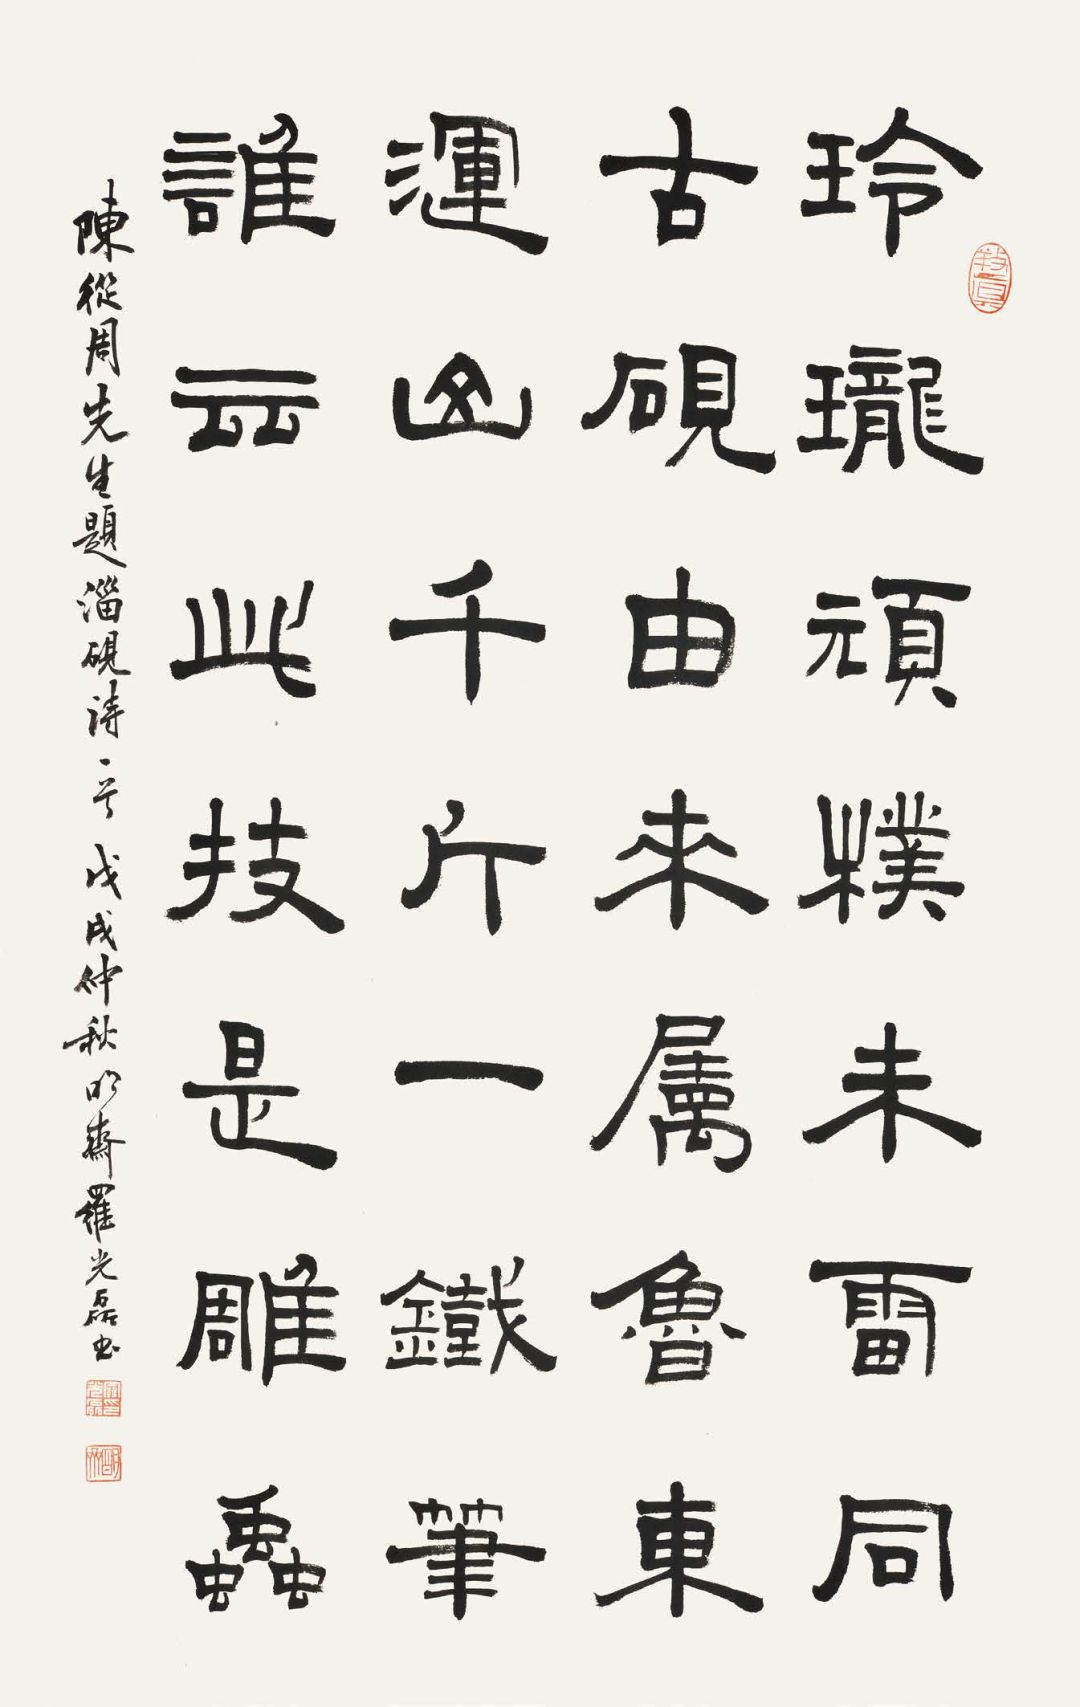 玲瓏頑樸未雷同
古硯由來属魯東
運千斤一鐵筆
誰云此技是雕蟲
陳從周先生題淄硯詩一首 戊戌仲秋明齋羅光磊書